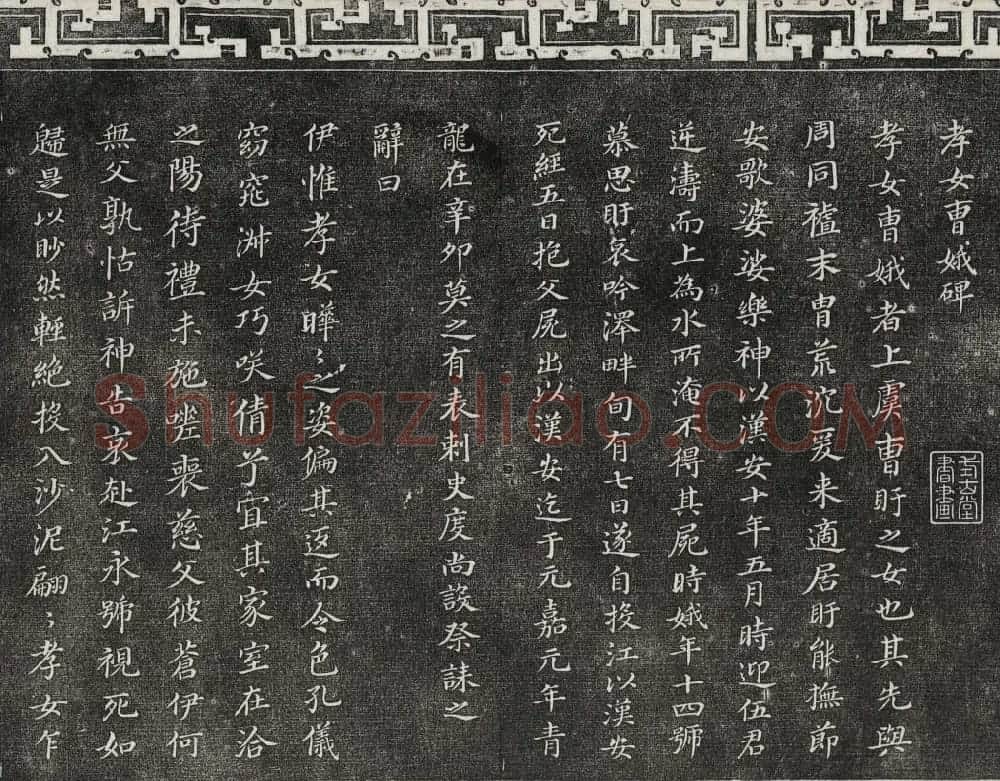 孝女曹娥碑
孝女曹娥者上虞曹盱之女也其先與
周同襤末胄荒沈爰来適居盱能撫節
安歌婆娑樂神以漢安十年五月時迎伍君
逆濤而上為水所淹不得其屍時娥年十四號
慕思盱哀吟澤畔旬有七日遂自投江以漢安
死經五日抱父屍出以漢安迄于元嘉元年青
龍在辛卯莫之有表刺史度尚設祭誄之
辭曰
伊惟孝女曄〻之姿偏其返而令色孔儀
窈窕淑女巧咲倩兮宜其家室在洽
之陽待禮未施嗟喪慈父彼蒼伊何
無父孰怙訴神告哀赴江永號視死如
歸是以眇然輕絕投入沙泥翩〻孝女乍
Shufaziliao.COM